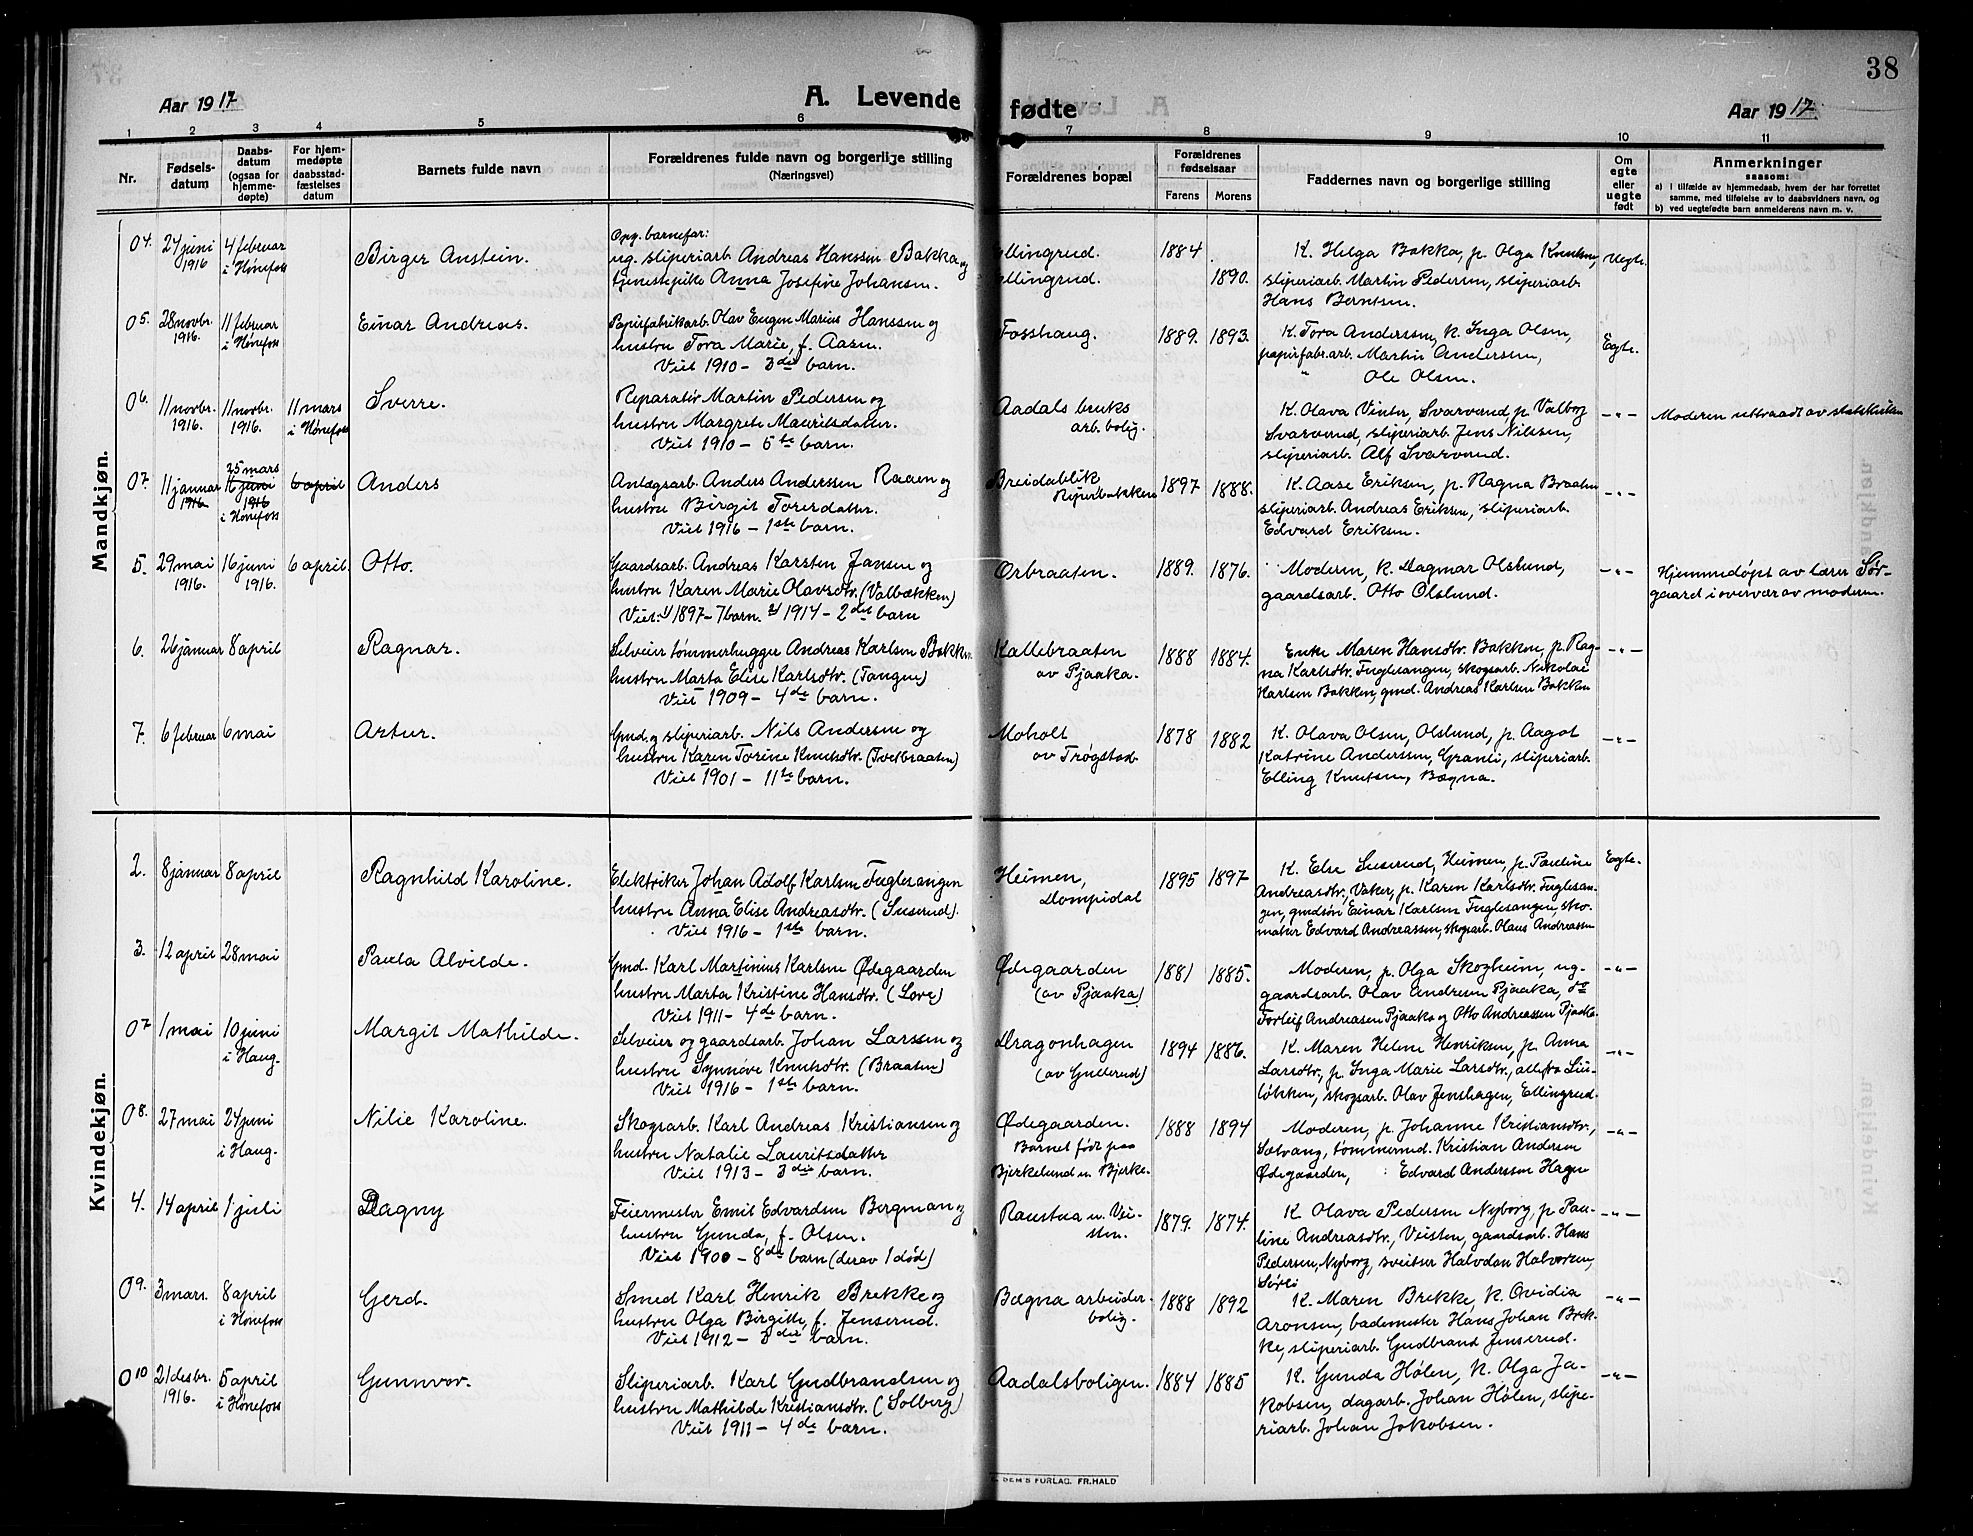 38
Aar 1917
A. Levende fødte
Aar 1917
1 2 3 4 5 6 7 8 9 10 11
Nr.
Fødsels-
datum
Daabs-
datum
(ogsaa for
hjemme-
døpte)
For hjem-
medøpte
daabsstad-
fæstelses
datum
Barnets fulde navn
Forældrenes fulde navn og borgerlige stilling
(Næringsvei)
Forældrenes bopæl
Forældrenes
fødselsaar
Farens Morens
Faddernes navn og borgerlige stilling
Om
egte
eller
uegte
født
Anmerkninger
saasom:
a) i tilfælde av hjemmedaab, hvem der har forrettet
samme, med tilføielse av to daabsvidners navn, og
b) ved uegtefødte barn anmelderens navn m. v.
Mandkjøn.
04.
24 juni
1916
4 februar
i Hønefoss
Birger Anstein.
Opg. barnefar:
ug. sliperiarb. Andreas Hanssen Bakka og
tjenestepike Anna Josefine Johansen.
Ellingrud.
Ellingrud.
1884
1890.
K. Helga Bakka, p. Olga Knutsen,
sliperiarb. Martin Pedersen, sliperiarb.
Hans Berntsen.
Uegte.
05.
28 novbr.
1916.
11 februar
i Hønefoss
Einar Andreas.
Papirfabrikarb. Olav Eugen Marius Hanssen og
hustru Tora Marie, f. Aasen.
Viet 1910 - 3die barn.
Fosshaug.
1889. 1893.
K. Tora Anderssen, K. Inga Olsen,
papirfabr.arb. Martin Anderssen,
" Ole Olsen.
Egte.
06.
11 novbr.
1916.
11 novbr.
1916.
11 mars
i Hønefoss
Sverre.
Reparatør Martin Pedersen og
hustru Margrete Mauritsdatter.
Viet 1910 - 5te barn.
Aadals bruks
arb. bolig.
K. Olava Vinter, Svarverud, p. Valborg
Svarverud, sliperiarb. Jens Nilsen,
sliperiarb. Alf Svarverud.
-"-
Moderen uttraadt av statskirken
07.
11 januar
1916
25 mars
16 juni
1916
i Hønefoss
6 april
Anders
Anlægsarb. Anders Anderssen Raaen og
hustru Birgit Toresdatter.
Viet 1916 - 1ste barn.
Breidablik
Riperbakken
1897 1888.
K. Aase Eriksen, p. Ragna Braaten
sliperiarb. Andreas Eriksen, sliperiarb.
Edvard Eriksen.
-"-
5.
29 mai
1916.
16 juni
1916.
6 april
Otto.
Gaardsarb. Andreas Karsten Jansen og
hustru Karen Marie Olavsdtr. (Valbækken)
Viet: 1) 1897 - 7 barn. 2) 1914 - 2det barn
Orbraaten.
1889. 1876.
Moderen, K. Dagmar Olslund,
gaardsarb. Otto Olslund.
-"-
Hjemmedøpt av lærer Sør-
gaard i overvær av moderen.
6.
26 januar
8 april
Ragnar.
Selveier tømmerhugger Andreas Karlsen Bakken
hustru Marta Elise Karlsdtr. (Tangen)
Viet 1909 - 4de barn.
Kallebraaten
av Pjaaka.
1888 1884.
Enke Maren Hansdtr. Bakken, p. Rag-
na Karlsdtr. Fuglesangen, skogsarb. Nikolai
Karlsen Bakken, gmd. Andreas Karlsen Bakken
-"-
7.
6 februar
6 mai
Artur.
Gmd. og sliperiarb. Nils Andersen og
hustru Karen Torine Knutsdtr. (Tvetbraaten)
Viet 1901 - 11te barn.
Moholt
av Trøgstad
1878 1882
K. Olava Olsen, Olslund, p. Aagot
Katrine Andersen, Granli, sliperiarb.
Elling Knutsen, Bægna.
-"-
Kvindekjøn.
2.
8 januar
8 april
Ragnhild Karoline.
Elektriker Johan Adolf Karlsen Fuglesangen
hustru Anna Elise Andreasdtr. (Suserud).
Viet 1916 - 1ste barn.
Heimen,
Dompidal
1895 1897
K. Else Suserud, Heimen, p. Pauline
Andreasdtr, Vaker, p. Karen Karlsdtr. Fuglesan-
gen, gmdsøn Einar Karlsen Fuglesangen, sko-
maker Edvard Andreassen, skogsarb. Olaus Andreassen
Egte.
3.
12 april
28 mai
Paula Alvilde.
Gmd. Karl Martinius Karlsen Ødegaarden
hustru Marta Kristine Hansdtr. (Lore)
Viet 1911 - 4de barn.
Ødegaarden
(av Pjaaka)
1881 1885.
Moderen, p. Olga Skogheim, ug-
gaardsarb. Olav Andresen Pjaaka, do
Torleif Andreasen Pjaaka og Otto Andreassen Pjaaka.
-"-
07
1 mai
10 juni
i Haug.
Margit Mathilde.
Selveier og gaardsarb. Johan Larssen og
hustru Synnøve Knutsdtr. (Braaten)
Viet 1916 - 1ste barn.
Dragonhagen
(av Gullerud)
1894 1886.
K. Maren Helene Henriksen, p. Anna
Larsdtr., p. Inga Marie Larsdtr., alle fra Lius-
løkken, skogsarb. Olav Jenshagen, Ellingrud.
-"-
08.
27 mai
24 juni
i Haug.
Nilie Karoline.
Skogsarb. Karl Andreas Kristiansen og
hustru Natalie Lauritsdatter
Viet 1913 - 3die barn.
Ødegaarden.
Barnet født paa
Bjerkelund u. Bjerke.
1888 1894
Moderen, p. Johanne Kristiansdtr.,
Solvang, tømmermd. Kristian Andersen
Ødegaarden, Edvard Anderssen Hagen
-"-
4.
14 april
1 juli
Dagny
Feiermester Emil Edvardsen Bergman og
hustru Gunda, f. Olsen.
Viet 1900 - 8de barn (derav 1 død)
Raustua u. Vei-
sten.
1879. 1874.
K. Olava Pedersen Nyborg, p. Pau-
line Andreasdtr., Veisten, gaardsarb. Hans
Pedersen, Nyborg, sveitser Halvdan Halvorsen,
-"-
09.
3 mars.
8 april
i Hønefoss
Gerd.
Smed Karl Henrik Brekke og
hustru Olga Birgitte, f. Jenserud.
Viet 1912 - 3die barn.
Bægna arbeider-
bolig.
1888 1892
K. Maren Brekke, K. Ovidia
Aronsen, bademester Hans Johan Brek-
ke, sliperiarb. Gudbrand Jenserud.
-"-
010
21 desbr.
1916.
5 april
i Hønefoss
Gunnvor.
Sliperiarb. Karl Gudbrandsen og
hustru Mathilde Kristiansdtr. (Solberg)
Viet 1911 - 4de barn.
Aadalsboligen.
1884 1885
K. Gunda Hølen, K. Olga Ja-
kobsen, dagarb. Johan Hølen, slipe-
riarb. Johan Jakobsen.
-"-
DEM'S FORLAG. FR.HALD